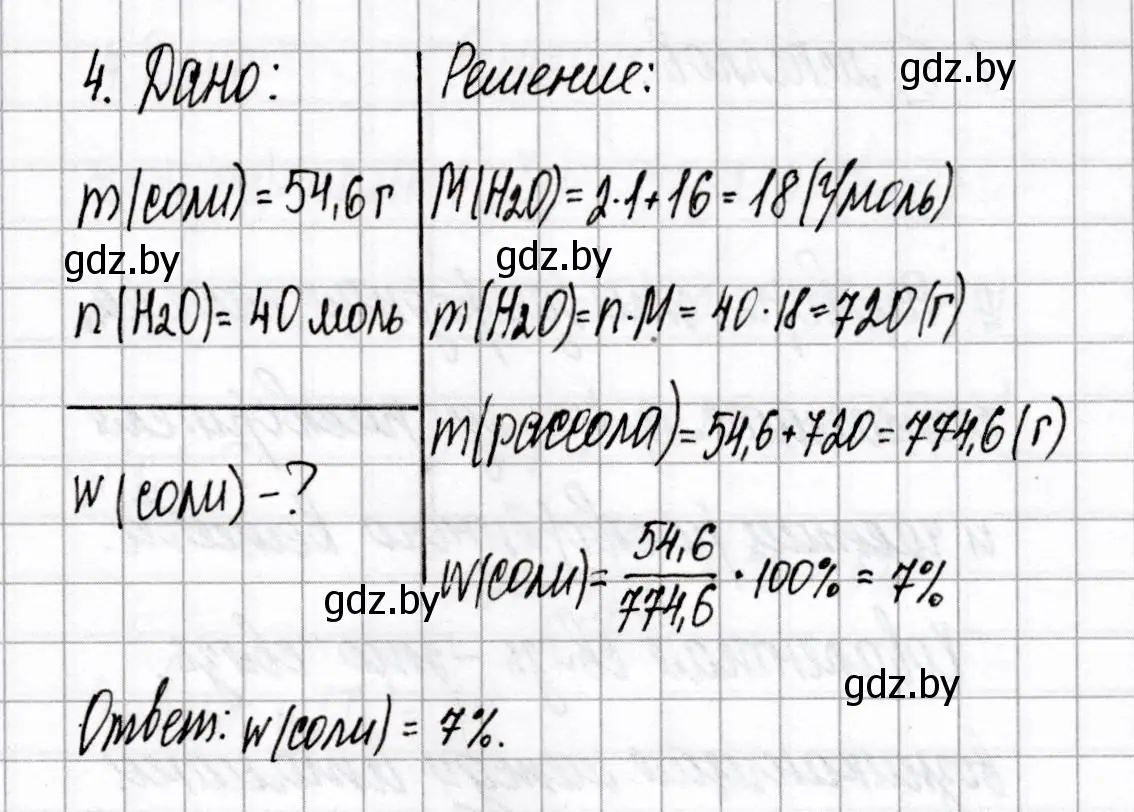 4. Дано:
m(соли) = 54,6 г
gdz.by
n(H2O) = 40 моль
w(соли) - ?
gdz.by
Решение:
gdz.by
M(H2O) = 2·1+16 = 18 (г/моль)
gdz.by
m(H2O) = n·M = 40·18 = 720 (г)
m(рассола) = 54,6+720 = 774,6 (г)
w(соли) = 54,6/774,6 · 100% = 7%
gdz.by
Ответ: w(соли) = 7%.